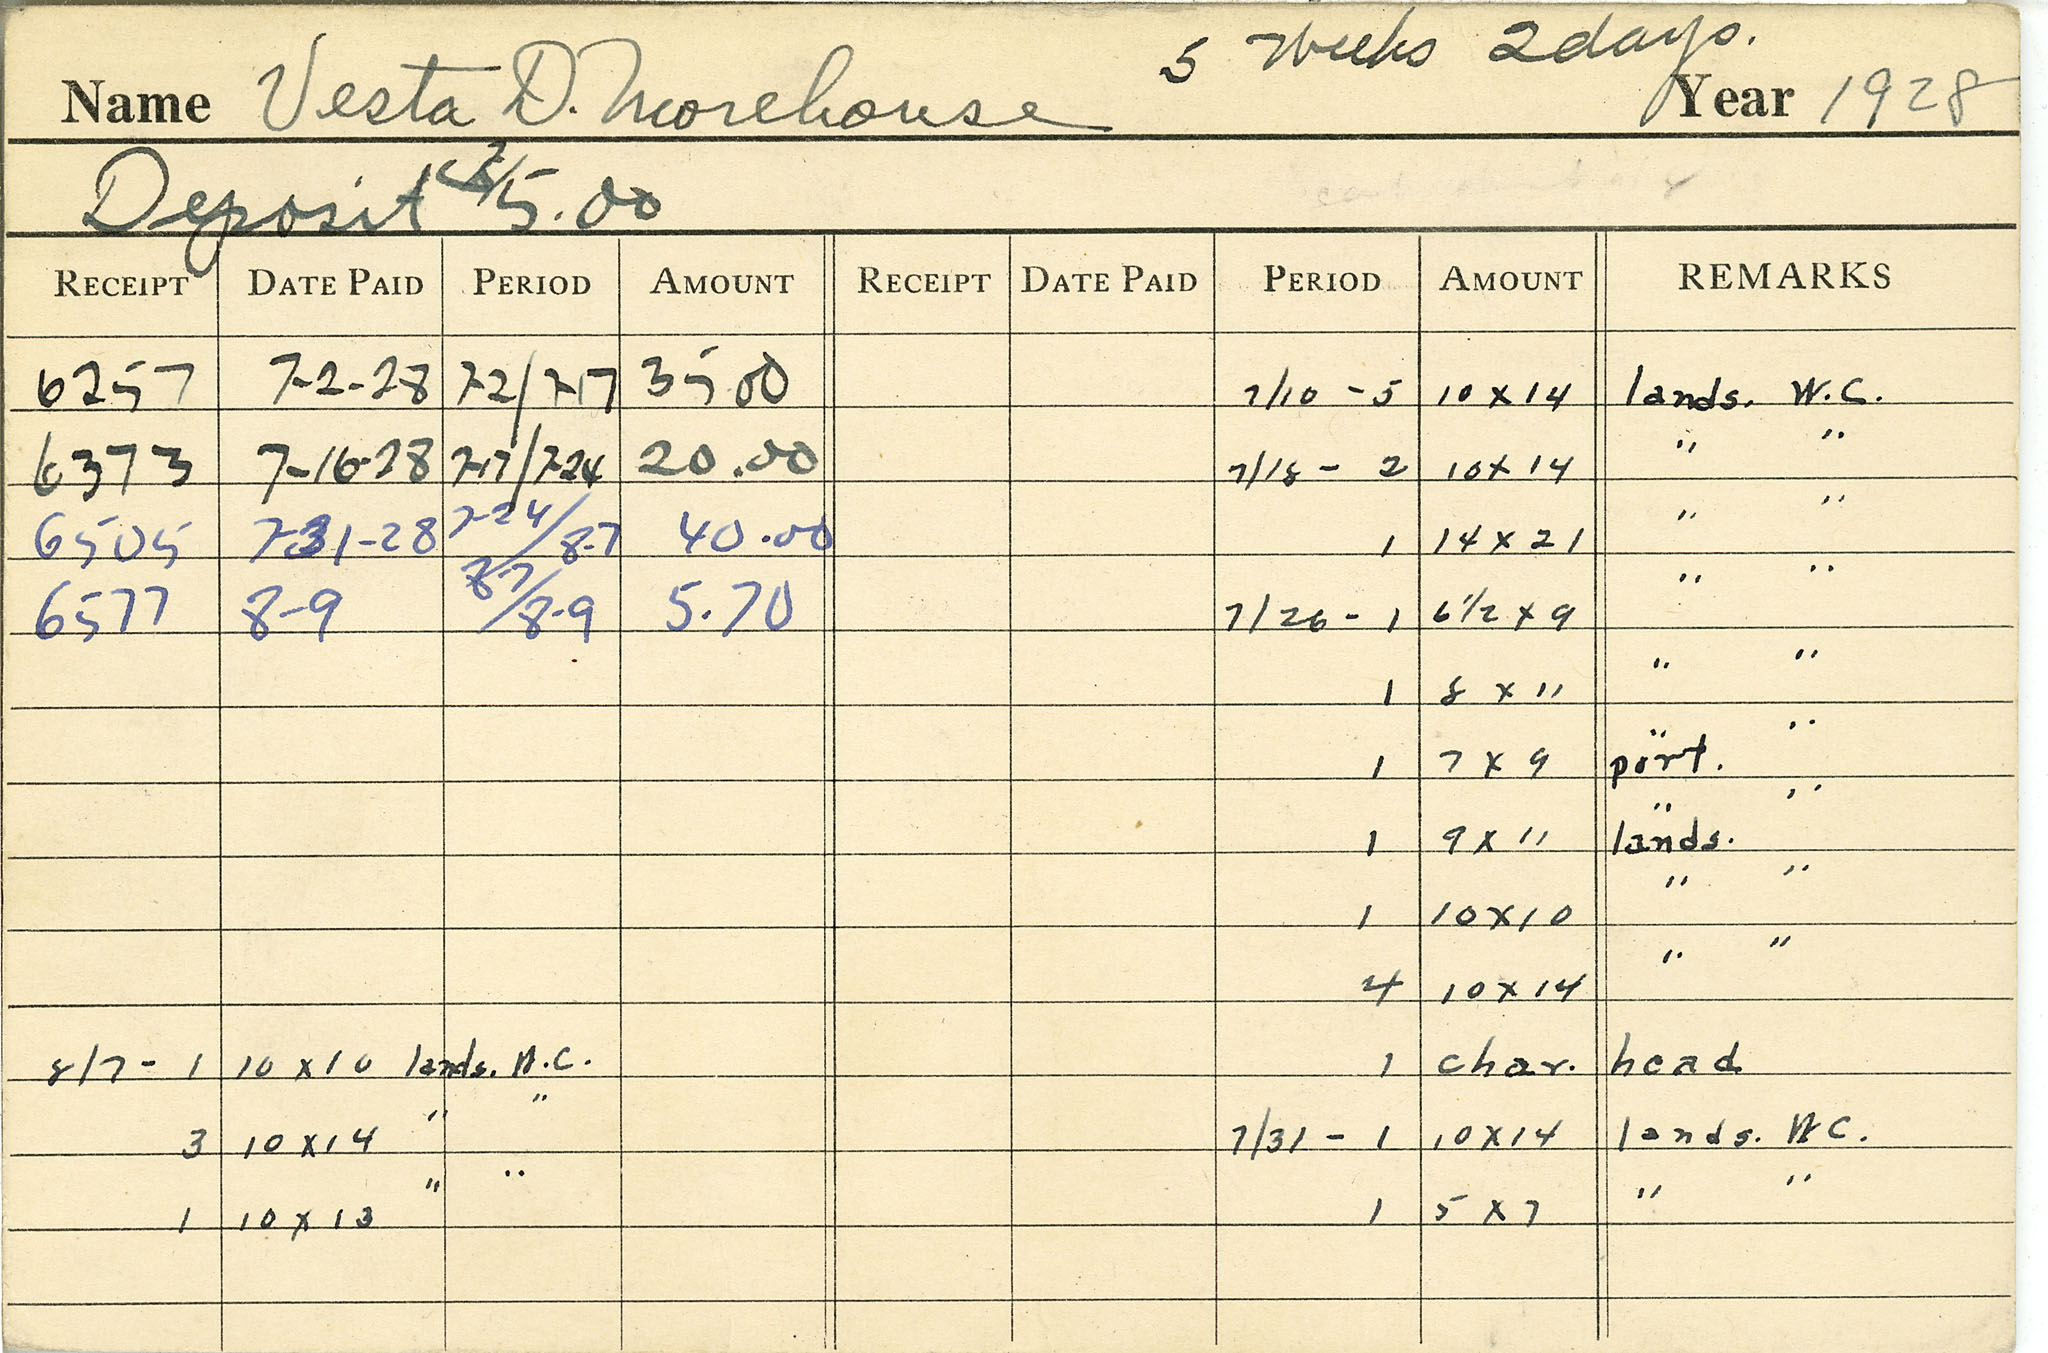 5 Weeks 2 days.
Name Vesta D. Morehouse Year 1928
Deposit 5.00
RECEIPT DATE PAID PERIOD AMOUNT RECEIPT DATE PAID PERIOD AMOUNT REMARKS
6257 7-2-28 7-2/7-17 35.00 7/10 - 5 10 x 14 lands. W.C.
6373 7-16-28 7-17/7-24 20.00 7/18 - 2 10 x 14 " "
6505 7-31-28 7-24/8-7 40.00 1 14 x 21 " "
6577 8-9 8-7/8-9 5.70 7/26 - 1 6 1/2 x 9 " "
1 8 x 11 " "
1 7 x 9 port. "
1 9 x 11 lands. "
1 10 x 10 " "
4 10 x 14 " "
8/7 - 1 10 x 10 lands. W.C. 1 char. head
3 10 x 14 " " 7/31 - 1 10 x 14 lands. W.C.
1 10 x 13 " " 1 5 x 7 " "